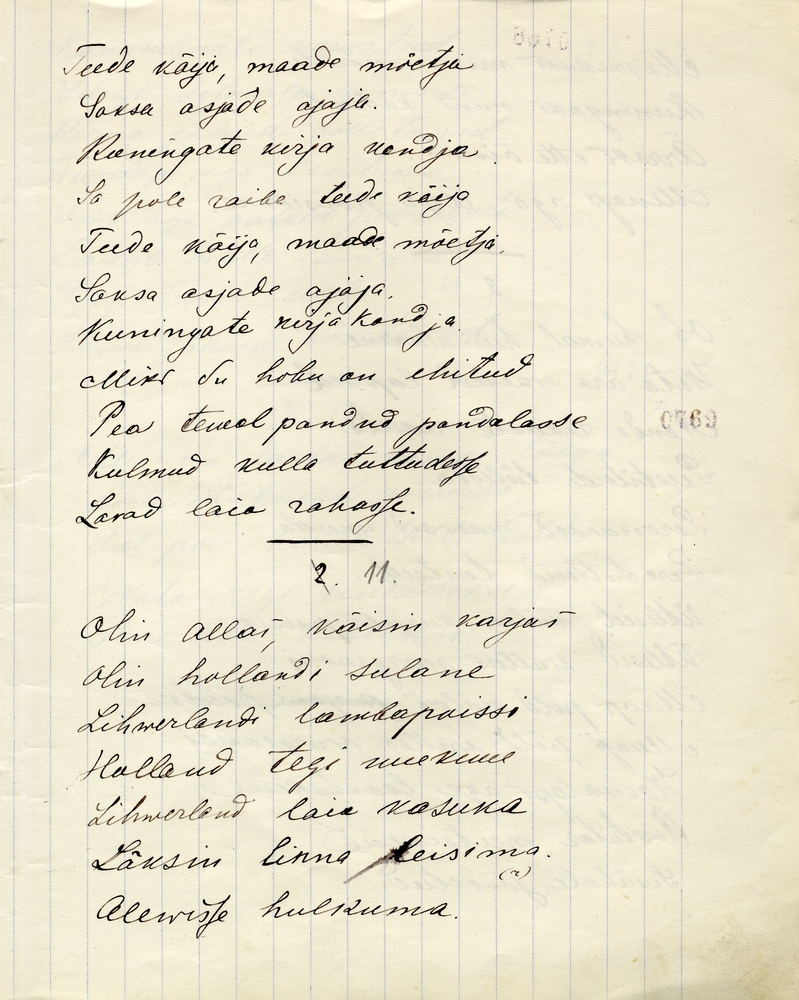 Teede käija, maade mõetja
Saksa asjade ajaja.
Kuningate kirja kandja
Sa pole raibe teede käija
Teede käija, maade mõetja,
Saksa asjade ajaja,
Kuningate kirja kandja.
Miks su hobu on ehitud
Pea tewal pandud pandelasse
Kulmud kulla tuttudesse
Lavad laia rahasse.
2. 11.
Olin allas, käisin karjas
Olin hollandi sulane
Lihwerlandi lambapoissi
Holland tegi uuekuue
Lihwerland laia kasuka
Läksin linna leisima.
(?)
Alewisse hulkuma.
0769